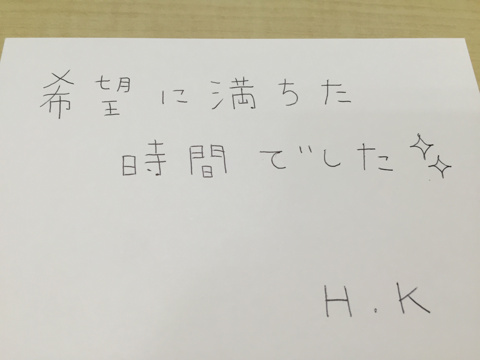 希望に満ちた
時間でした✨
H.K